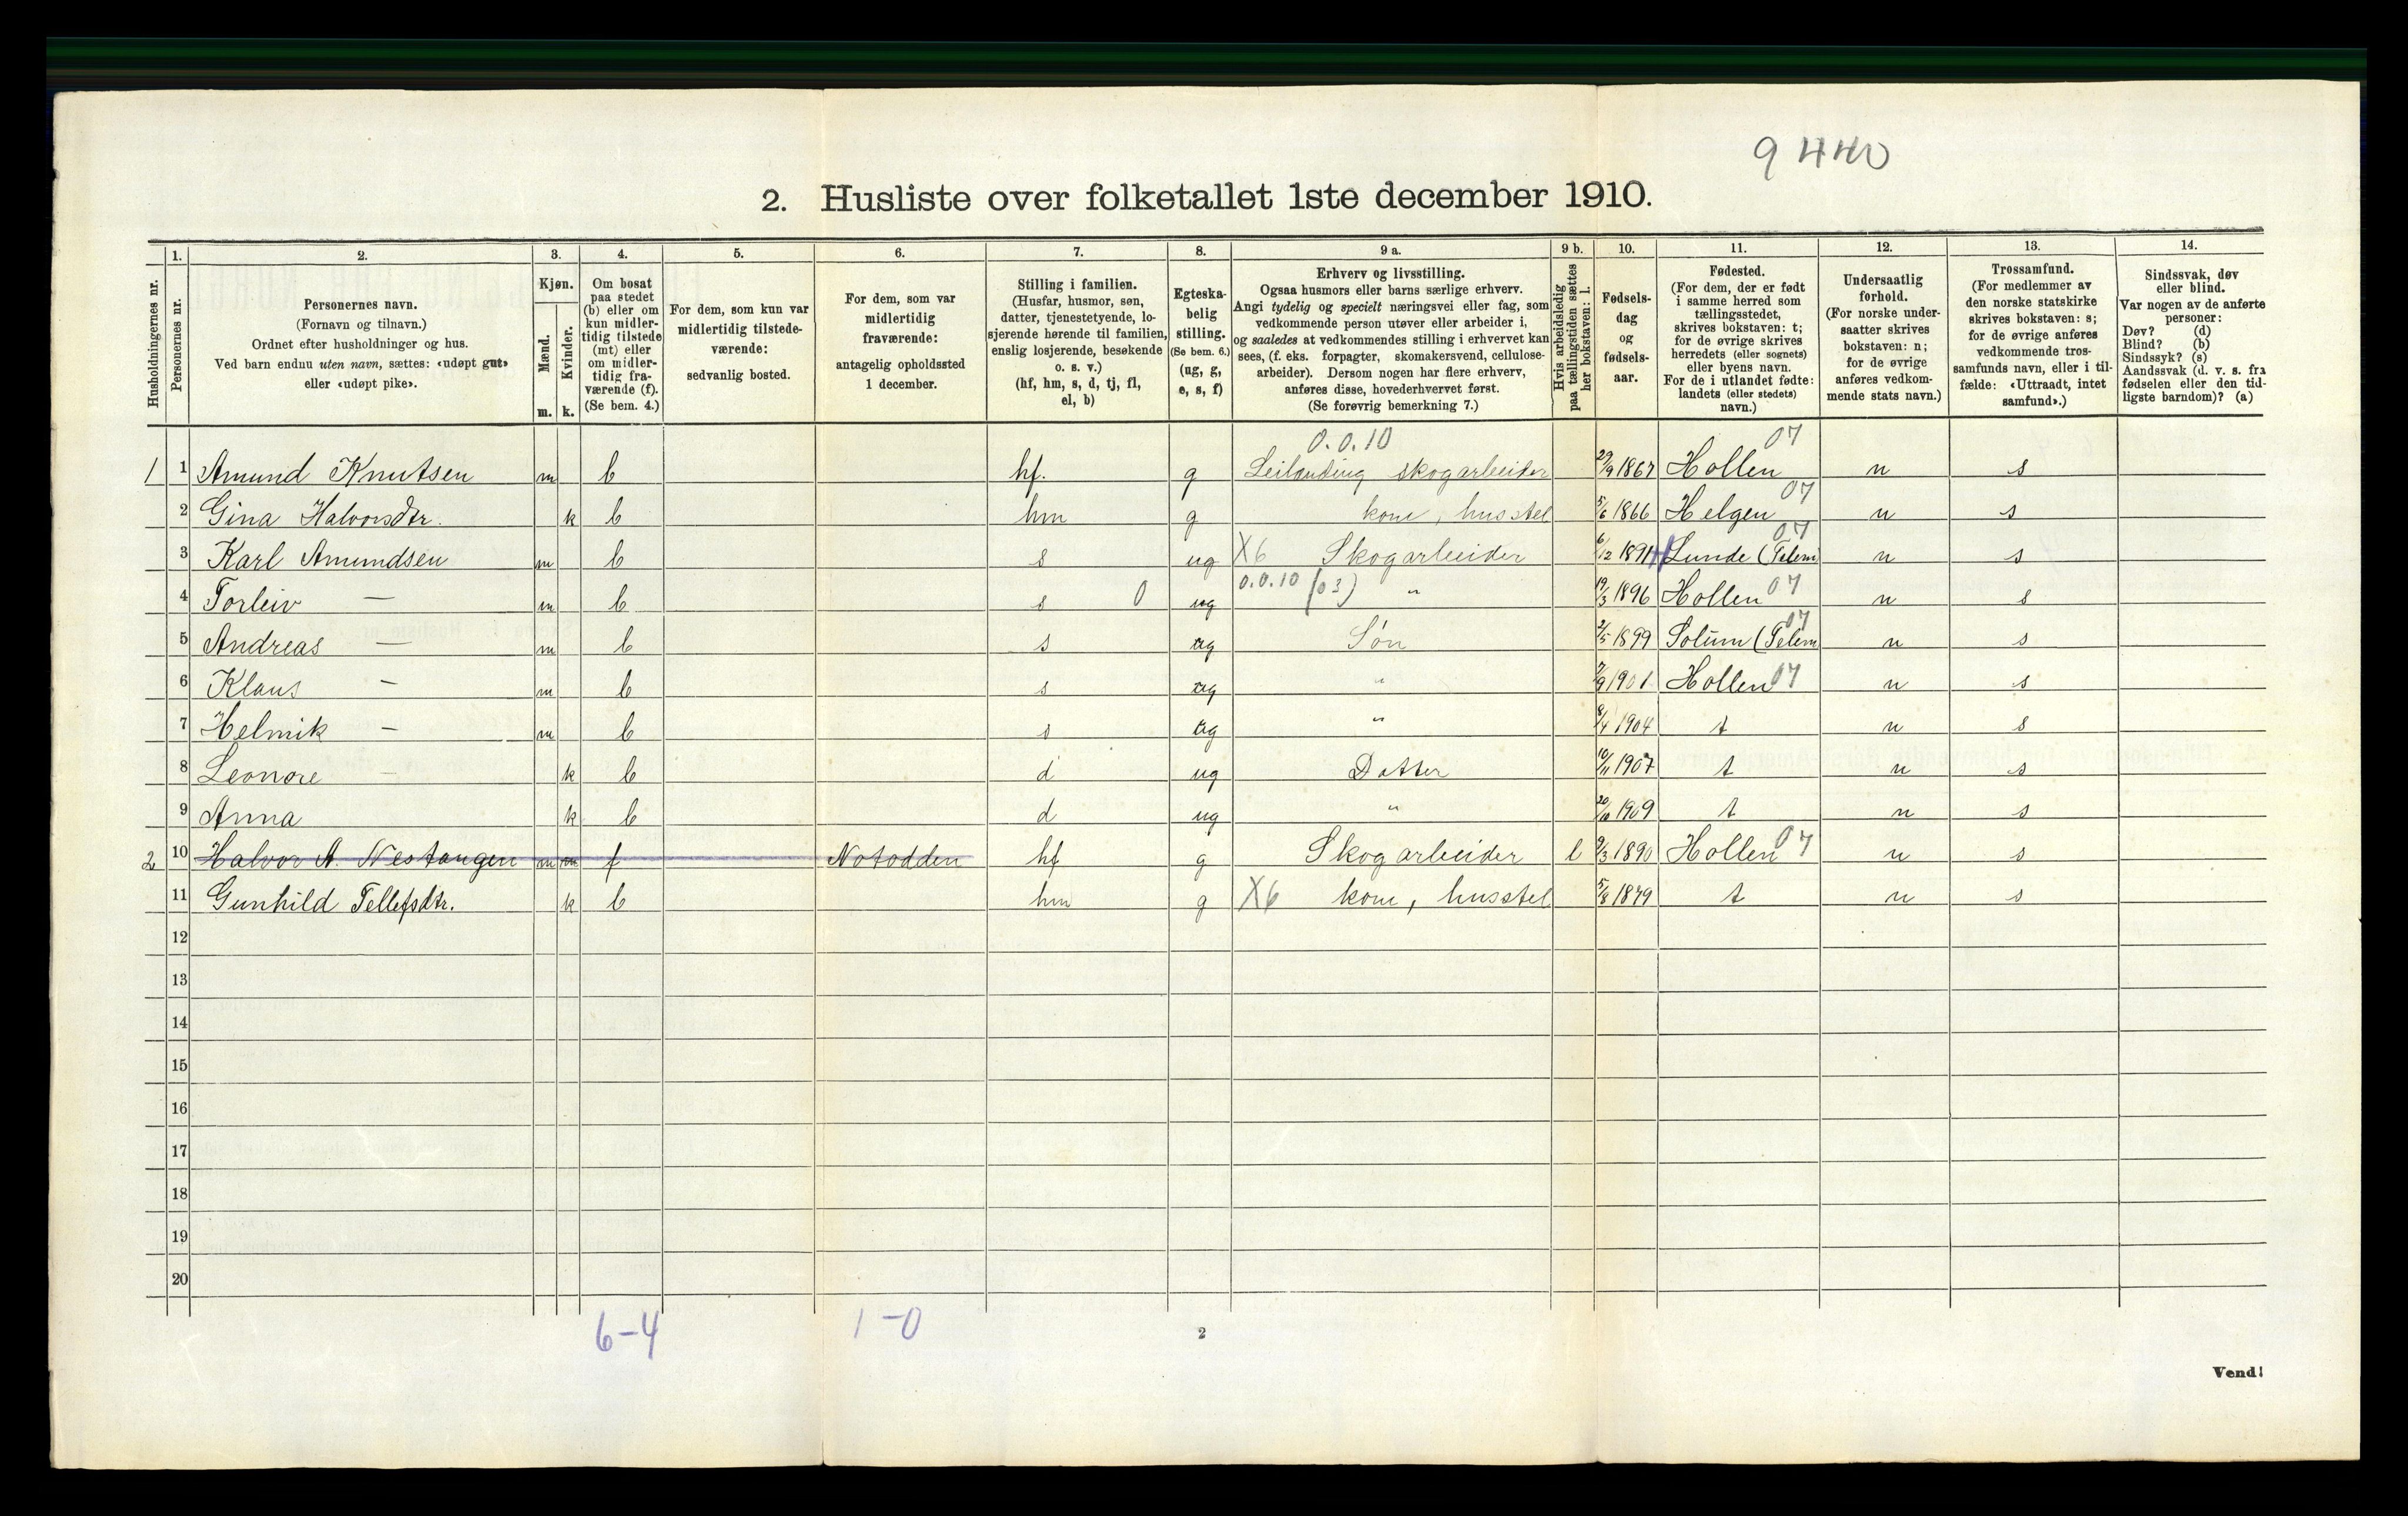 9440
2. Husliste over folketallet 1ste december 1910.
Husholdningernes nr.
1.
Personernes nr.
2.
Personernes navn.
(Fornavn og tilnavn.)
Ordnet efter husholdninger og hus.
Ved barn endnu uten navn, sættes: «udøpt gut»
eller «udøpt pike».
3.
Kjøn.
Mænd.
Kvinder.
m. k.
4.
Om bosat
paa stedet
(b) eller om
kun midler-
tidig tilstede
(mt) eller
om midler-
tidig fra-
værende (f).
(Se bem. 4.)
5.
For dem, som kun var
midlertidig tilstede-
værende:
sedvanlig bosted.
6.
For dem, som var
midlertidig
fraværende:
antagelig opholdssted
1 december.
7.
Stilling i familien.
(Husfar, husmor, søn,
datter, tjenestetyende, lo-
sjerende hørende til familien,
enslig losjerende, besøkende
o. s. v.)
(hf, hm, s, d, tj, fl,
el, b)
8.
Egteska-
belig
stilling.
(Se bem. 6.)
(ug, g,
e, s, f)
9 a.
Erhverv og livsstilling.
Ogsaa husmors eller barns særlige erhverv.
Angi tydelig og specielt næringsvei eller fag, som
vedkommende person utøver eller arbeider i,
og saaledes at vedkommendes stilling i erhvervet kan
sees, (f. eks. forpagter, skomakersvend, cellulose-
arbeider). Dersom nogen har flere erhverv,
anføres disse, hovederhvervet først.
(Se forøvrig bemerkning 7.)
9 b.
Hvis arbeidsledig
paa tællingstiden sættes
her bokstaven: l.
10.
Fødsels-
dag
og
fødsels-
aar.
11.
Fødested.
(For dem, der er født
i samme herred som
tællingsstedet,
skrives bokstaven: t;
for de øvrige skrives
herredets (eller sognets)
eller byens navn.
For de i utlandet fødte:
landets (eller stedets)
navn.)
12.
Undersaatlig
forhold.
(For norske under-
saatter skrives
bokstaven: n;
for de øvrige
anføres vedkom-
mende stats navn.)
13.
Trossamfund.
(For medlemmer av
den norske statskirke
skrives bokstaven: s;
for de øvrige anføres
vedkommende tros-
samfunds navn, eller i til-
fælde: «Uttraadt, intet
samfund».)
14.
Sindssvak, døv
eller blind.
Var nogen av de anførte
personer:
Døv? (d)
Blind? (b)
Sindssyk? (s)
Aandssvak (d. v. s. fra
fødselen eller den tid-
ligste barndom)? (a)
0.0.10 07
1 1 Amund Knutsen m b hf. g Leilending skogarbeider 29/9 1867 Hollen n s
07
2 Gina Halvorsdtr. k b hm g kone, husstel 5/6 1866 Helgen n s
07
3 Karl Amundsen m b s ug X6 Skogarbeider 6/12 1891 Lunde (Telem n s
4 Torleiv — m b s 0 ug 0.0.10 (03) " 19/3 1896 Hollen 07 n s
07
5 Andreas — m b s ug Søn 2/5 1899 Solum (Telem n s
6 Klaus — m b s ug " 7/9 1901 Hollen 07 n s
7 Helmik — m b s ug " 8/4 1904 t n s
8 Leonore — k b d ug Datter 10/11 1907 t n s
9 Anna k b d ug " 20/10 1909 t n s
2 10 Halvor A. Nestangen m m f Notodden hf g Skogarbeider l 9/3 1890 Hollen 07 n s
11 Gunhild Tellefsdtr. k b hm g X6 kone, husstel 5/8 1879 t n s
12
13
14
15
16
17
18
19
20
6-4 1-0
2
Vend!